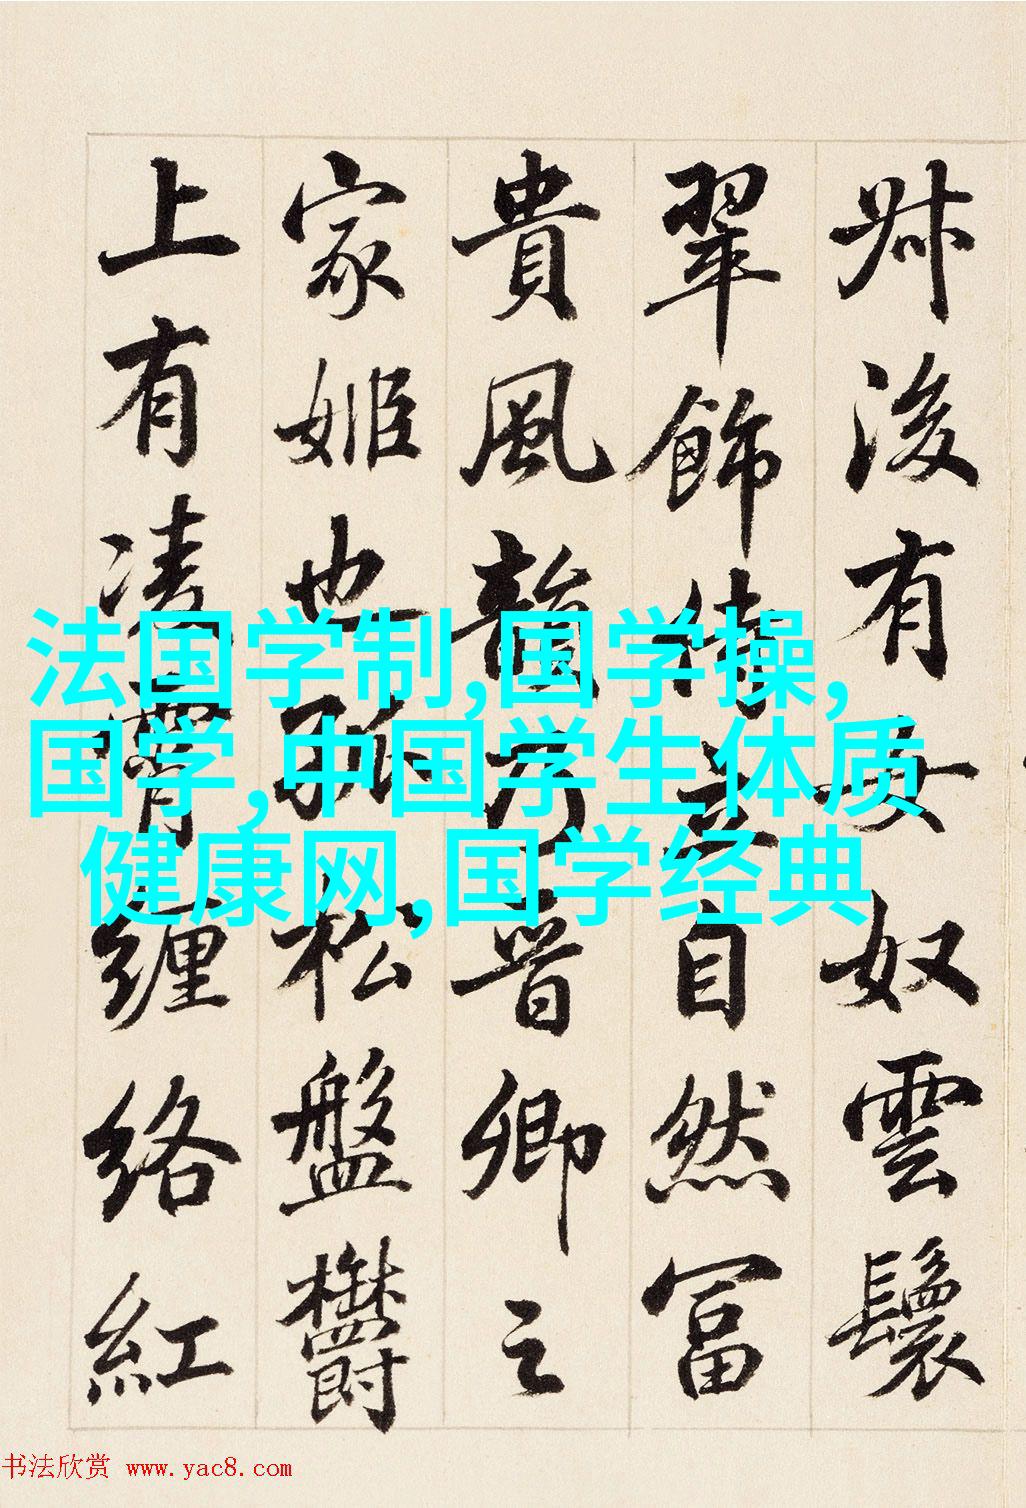 叔後有女奴雲鬟
翠飾侍立自然富
貴風韻乃晉卿之
家姬也孤松盤欝
上有凌霄纏絡紅
法国学制,国学操,
国学,中国学生体质
健康网,国学经典
书法欣赏 www.yac8.com